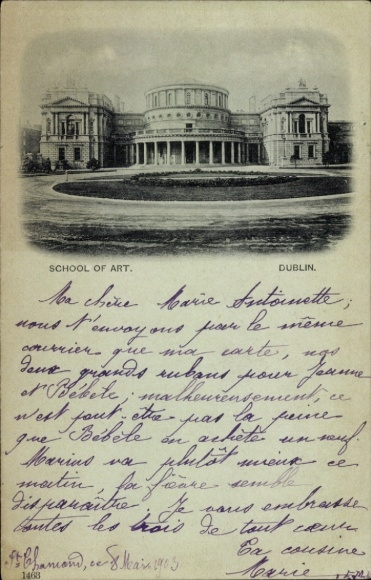 SCHOOL OF ART. DUBLIN.
Ma chère Marie Antoinette ;
nous t'envoyons par le même
courrier que ma carte, nos
deux grands rubans pour Jeanne
et Bébèle ; malheureusement, ce
n'est peut être pas la peine
que Bébèle en achète un neuf.
Marius va plutôt mieux ce
matin, la fièvre semble
disparaître. Je vous embrasse
toutes les trois de tout cœur
Ta cousine
Marie
St Chamond, ce 8 Mars 1903
1463